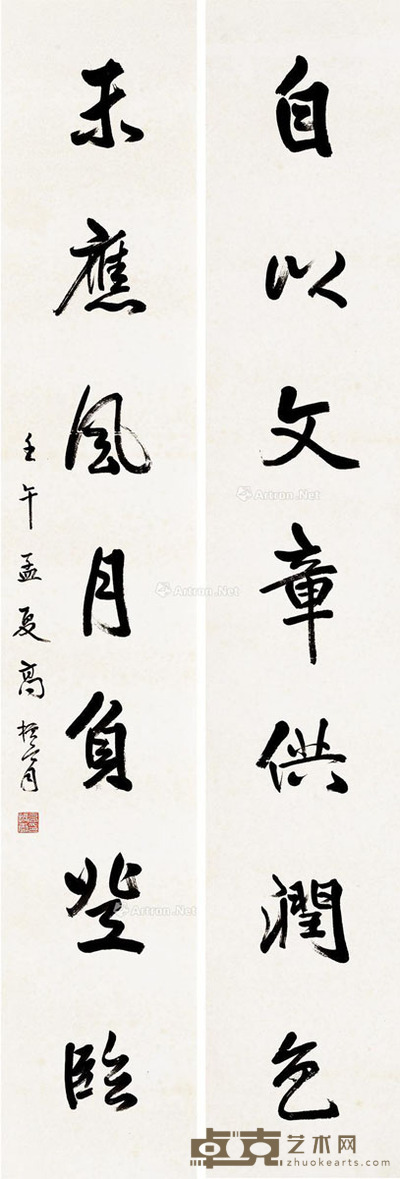 自以文章供潤色
未應風月負登臨
壬午孟夏高振霄
Artron.Net
Artron.Net
Artron.Net
卓克艺术网
zhuokearts.com